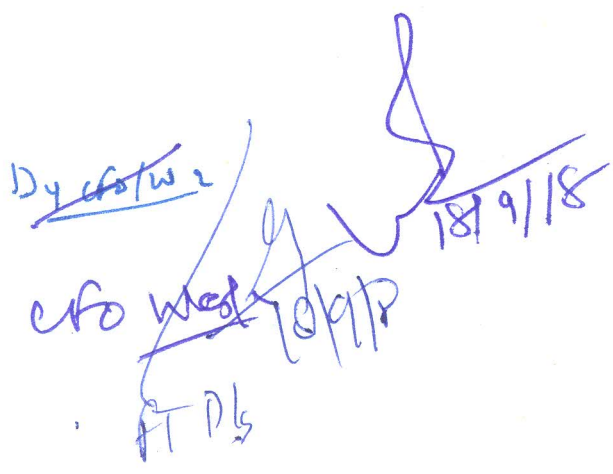 Dy CFO/W2
18/9/18
CFO West 18/9/18